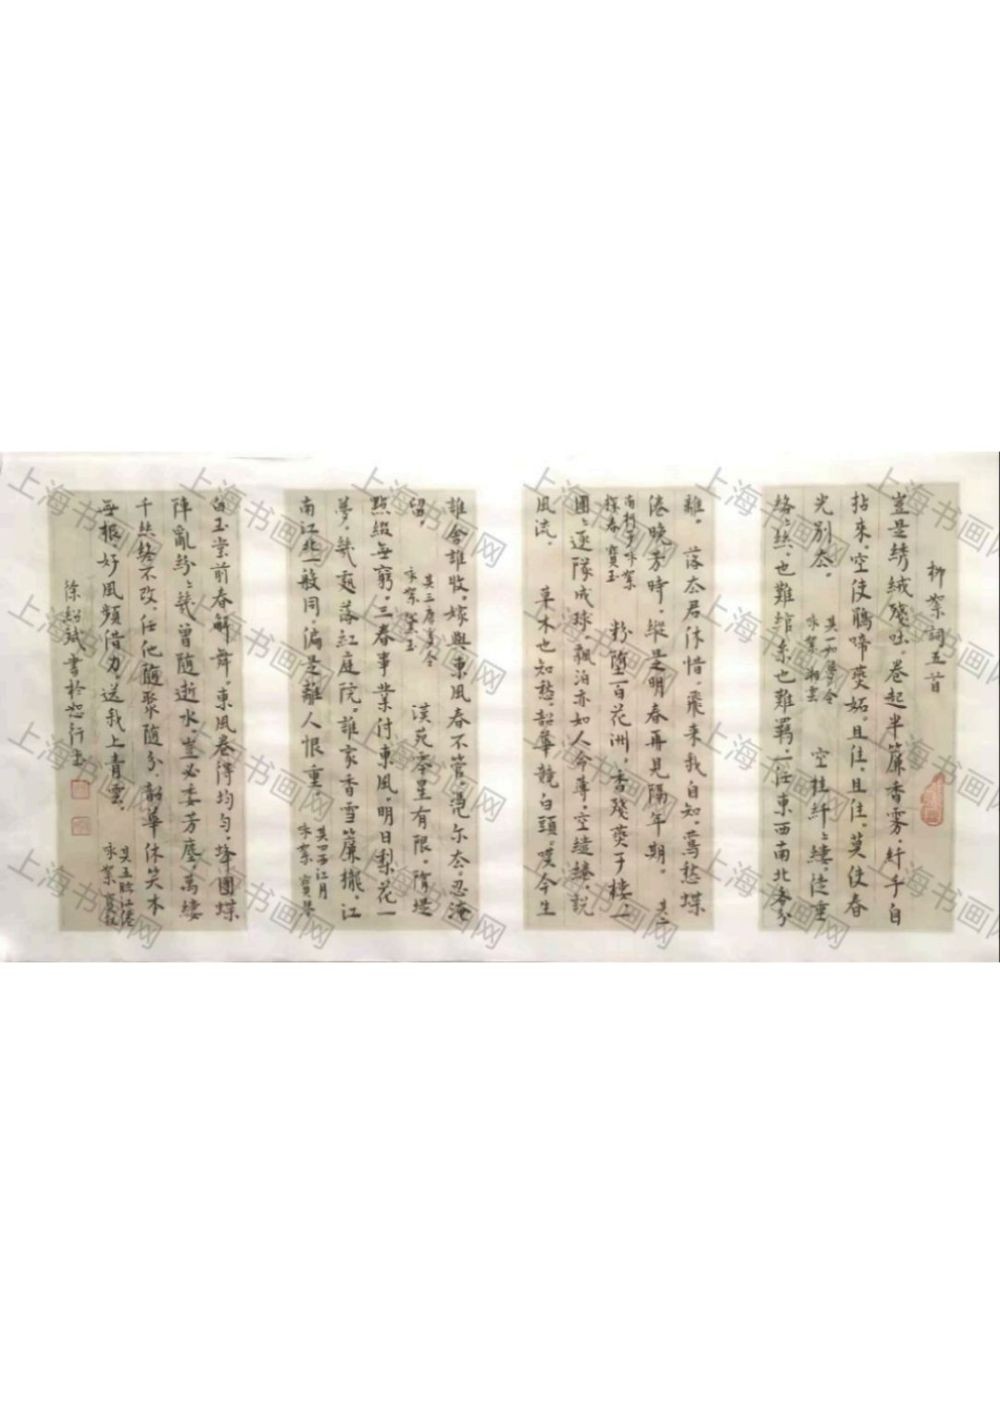 柳絮詞五首
豈是綉絨殘吐。卷起半簾香雾。纤手自
拈來。空使鵑啼燕妬。且住。且住。莫使春
光別去。
其一如夢令
咏絮 湘雲
空挂纤纤縷。徒垂
絡絡絲。也難綰系也難羁。一任東西南北各分
離。 落去君休惜。飛来我自知。鶯愁蝶
倦晚芳時。縱是明春再見隔年期。
其二
南柯子咏絮
探春 寶玉
粉墮百花洲。香殘燕子樓。一
團團逐隊成球。飄泊亦如人命薄。空繾綣。説
風流。 草木也知愁。韶華竟白頭。嘆今生
誰舍誰收。嫁與東風春不管。凭尔去。忍淹
留。
其三唐多令
咏絮 黛玉
漢苑零星有限。隋堤
點綴無窮。三春事業付東風。明日梨花一
夢。幾處落紅庭院。誰家香雪簾櫳。江
南江北一般同。偏是離人恨重。
其四西江月
咏絮 寶琴
白玉堂前春解舞。東風卷得均匀。蜂團蝶
陣亂紛紛。幾曾隨逝水。豈必委芳塵。萬縷
千絲終不改。任他隨聚隨分。韶華休笑本
無根。好風頻借力。送我上青雲。
其五臨江仙
咏絮 寶釵
徐紹斌書於
上海书画网